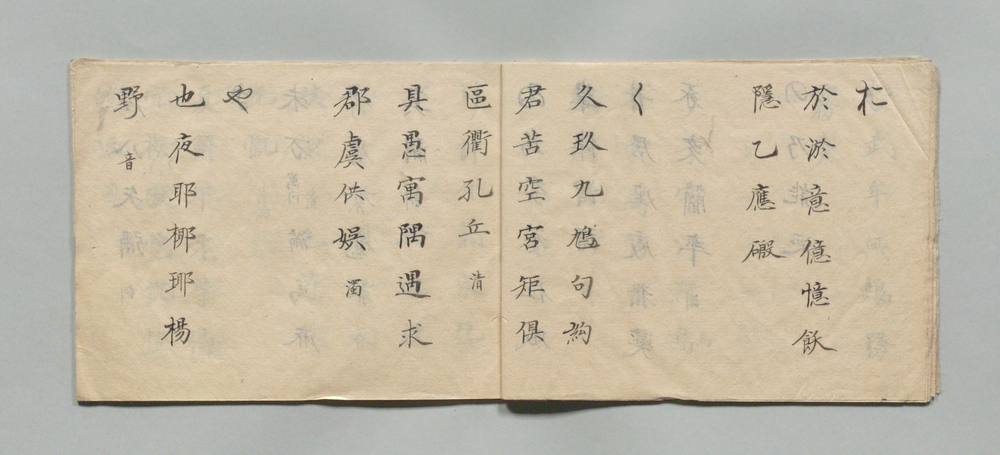 於淤意億憶飫
隱乙應磤
く
久玖九鳩句絇
君苦空宮矩倶
區衢孔丘 清
具愚寓隅遇求
郡虞供娯 濁
や
也夜耶椰瑘楊
野 音